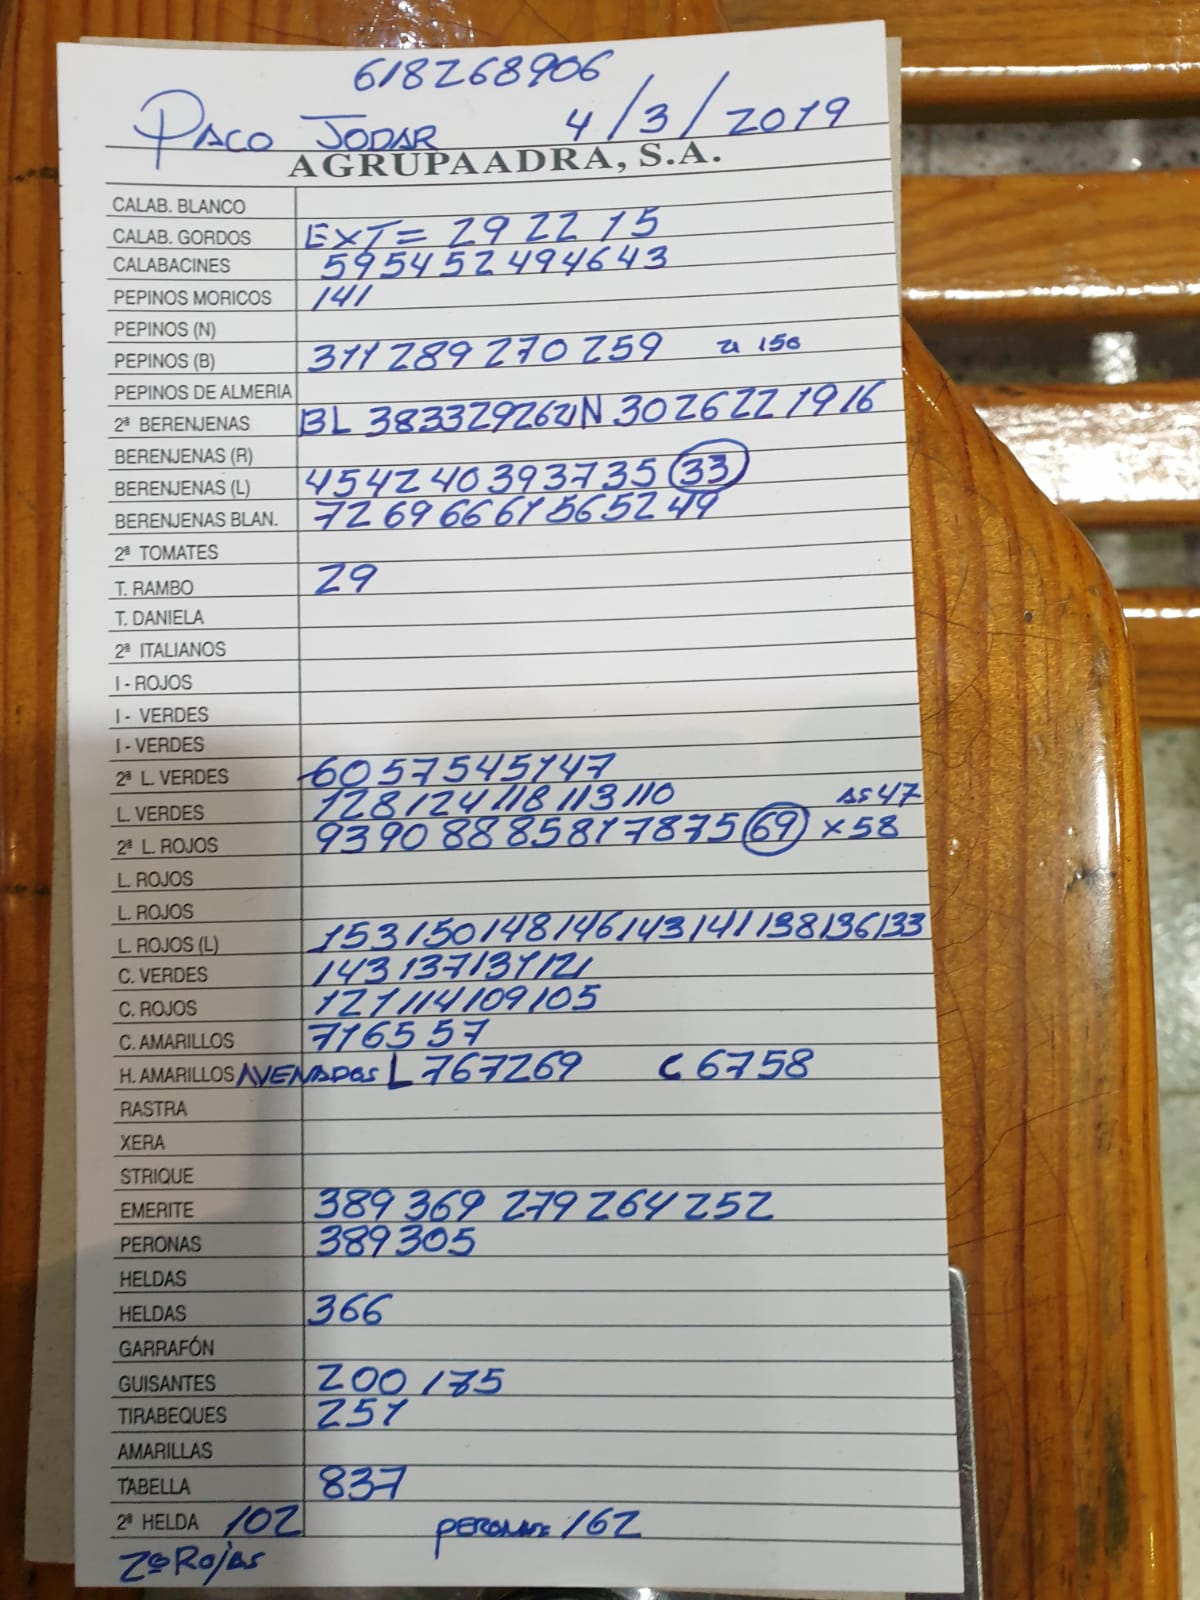 618268906
PACO JODAR 4/3/2019
AGRUPAADRA, S.A.
CALAB. BLANCO
CALAB. GORDOS EXT= 29 22 15
CALABACINES 59 54 52 49 46 43
PEPINOS MORICOS 141
PEPINOS (N)
PEPINOS (B) 311 289 270 259 150
PEPINOS DE ALMERIA
2ª BERENJENAS BL 38 33 29 26 21 N 30 26 22 19 16
BERENJENAS (R)
BERENJENAS (L) 45 42 40 39 37 35 33
BERENJENAS BLAN. 72 69 66 61 56 52 49
2ª TOMATES
T. RAMBO 29
T. DANIELA
2ª ITALIANOS
I - ROJOS
I - VERDES
I - VERDES
2ª L. VERDES 60 57 54 51 47
L. VERDES 128 124 118 113 110 47
2ª L. ROJOS 93 90 88 85 81 78 75 69 x 58
L. ROJOS
L. ROJOS
L. ROJOS (L) 153 150 148 146 143 141 138 136 133
C. VERDES 143 137 131 121
C. ROJOS 121 114 109 105
C. AMARILLOS 71 65 57
H. AMARILLOS AVENADOS L 76 72 69 C 67 58
RASTRA
XERA
STRIQUE
EMERITE 389 369 279 264 252
PERONAS 389 305
HELDAS
HELDAS 366
GARRAFÓN
GUISANTES 200 175
TIRABEQUES 251
AMARILLAS
TABELLA 837
2ª HELDA 102 162
2ª Rojas